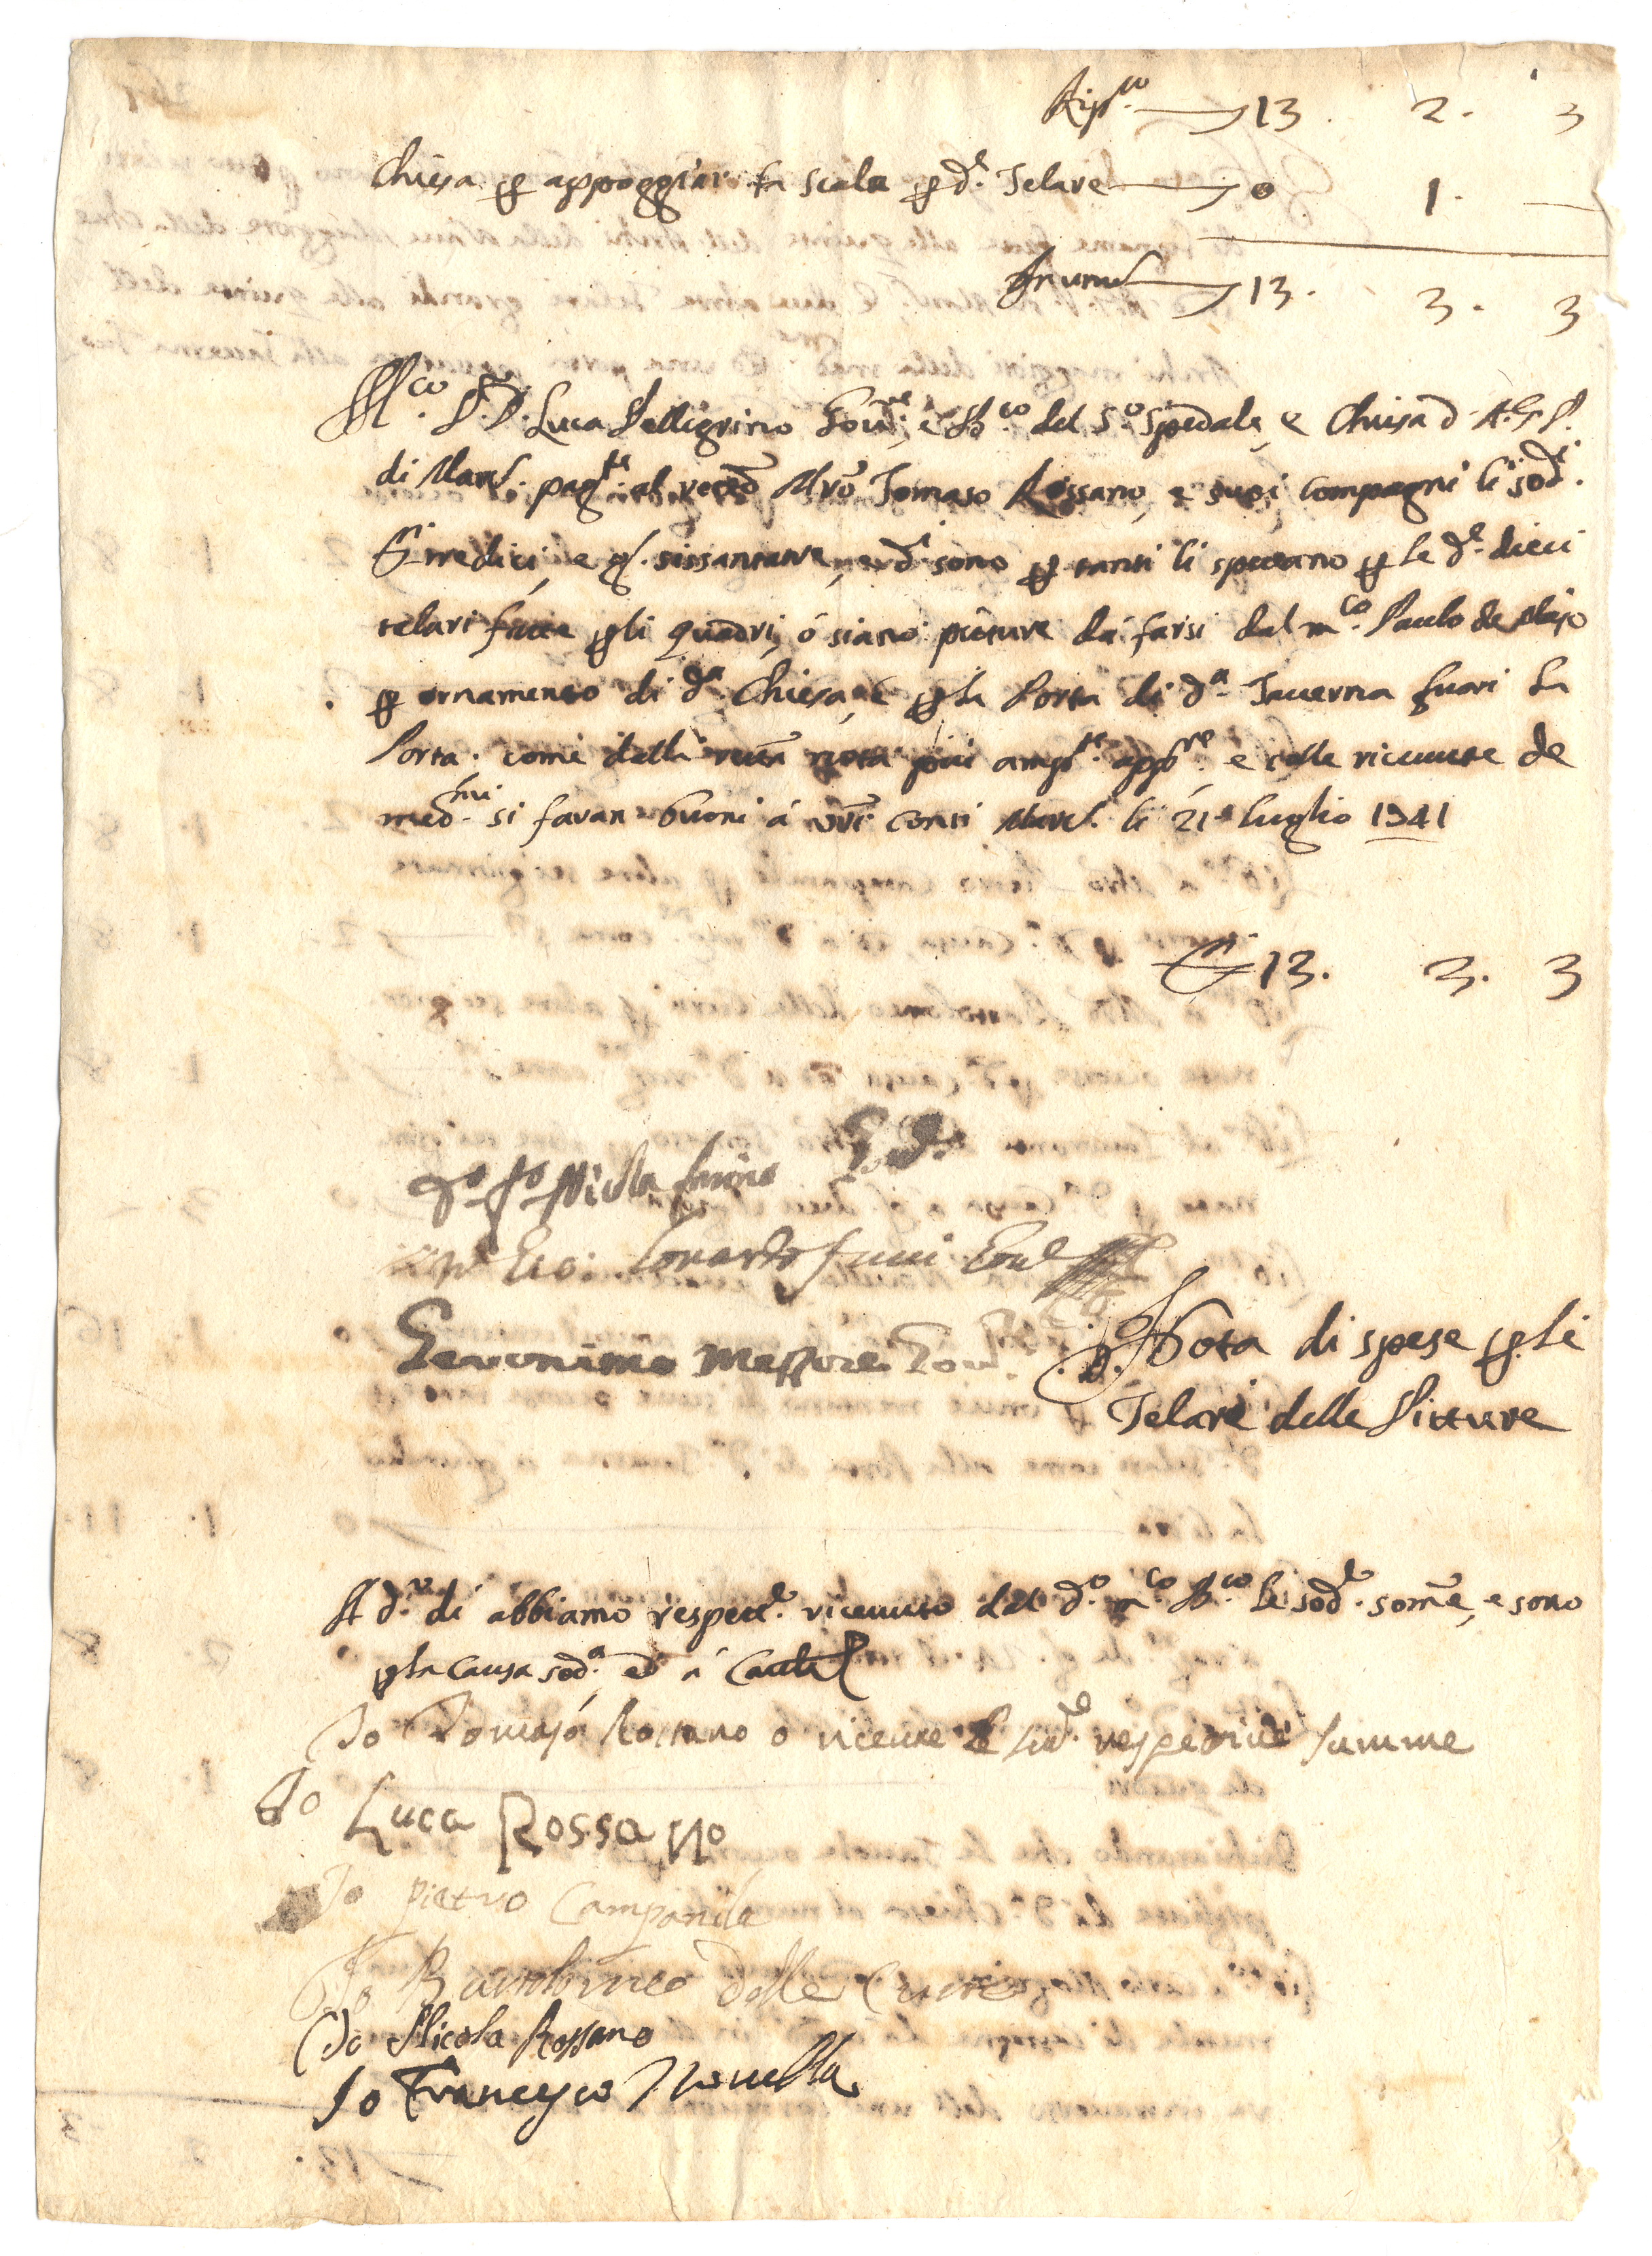 Rip.co 13. 2. 3
Chiesa p appoggiar la scala p d.e Telare 0 1. —
In unum 13. 3. 3
M.co S.r D. Luca Pelligrino Gov.re, e B.co del S.o Spedale, e Chiesa d A.G.P.
di Mart. pag.te al Mro Tomaso Rossano, e suoi compagni li sod.i
tredici, e g. sissantatre, e d.i sono p tanti li spettano p le d.e dieci
telari fatte p li quadri, ó siano pitture da farsi dal m.co Paulo de Majo
p ornamento di d.a Chiesa, e p la Porta di d.a Taverna fuori la
Porta. come dalla nota piu amp.te app.re, e colle ricevute de
med.mi si faran buoni á vri conti Mart. li 21 luglio 1741
13. 3. 3
Nicola Gov.
Lonardo Gov
Geronimo Massore Gov.
Nota di spese p li
Telari delle Pitture
A d.o dí abbiamo respett.e ricevuto dal d.o m.co B.co le sod.e some, e sono
p la causa sod.a ed á Cautel
Io Tomaso Rossano o riceute le sud.e respetive summe
Io Luca Rossano
Io Pietro Campanile
Io Bartolomeo delle Curti
Io Nicola Rossano
Io Francesco Novella